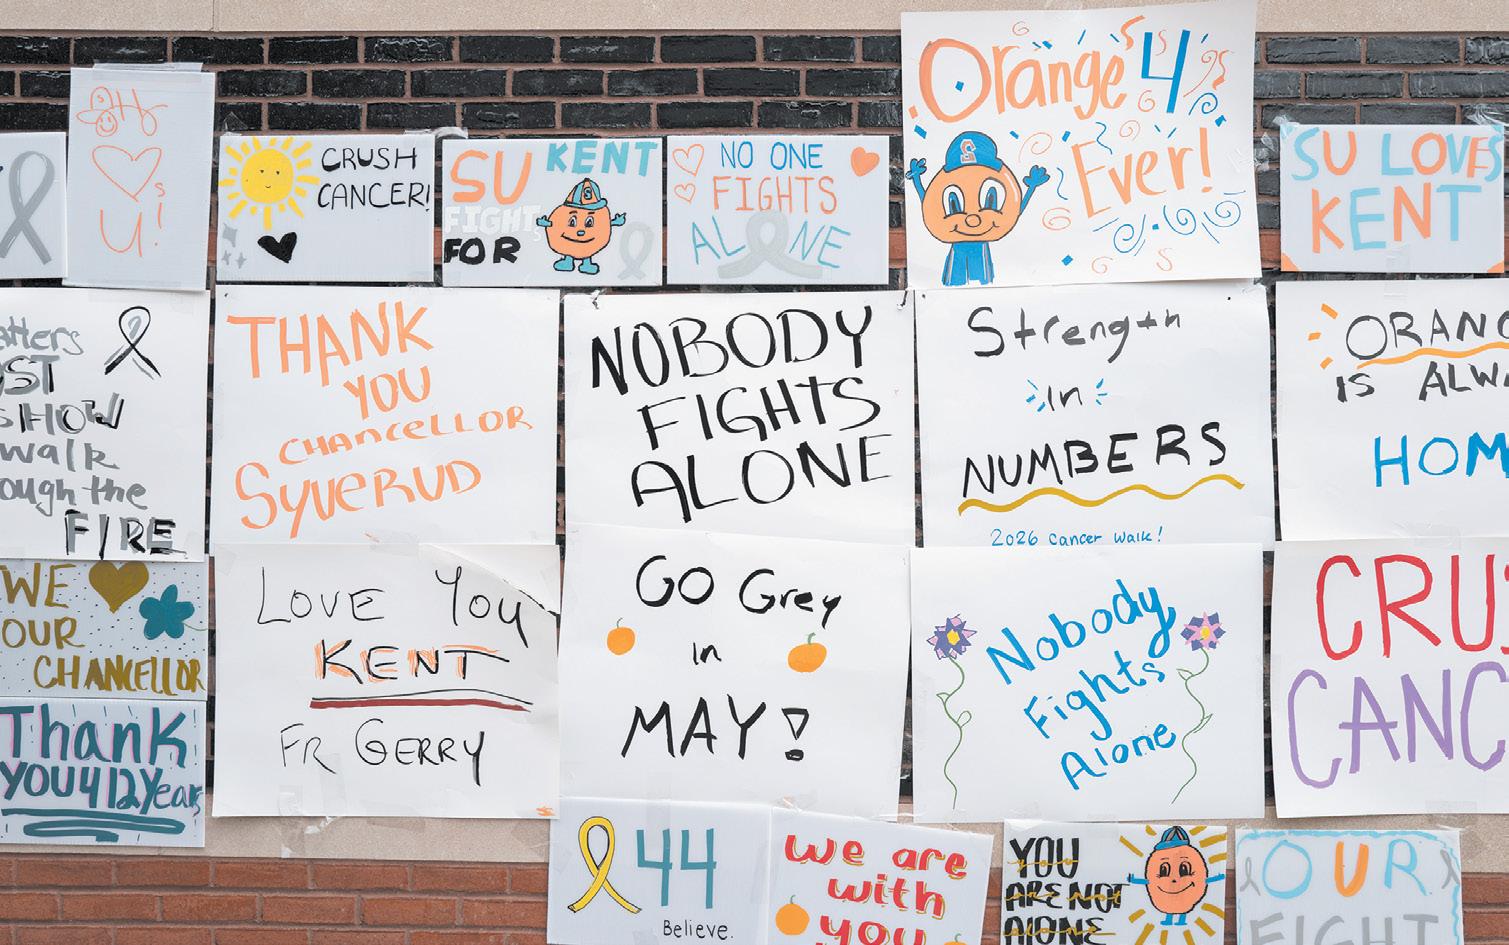 Orange 4
Ever!
OHr
s
U!
CRUSH
CANCER!
SU KENT
FIGHTS
FOR
NO ONE
FIGHTS
ALONE
SU LOVES
KENT
SHOW
walk
the
FIRE
THANK
YOU
CHANCELLOR
SYVERUD
NOBODY
FIGHTS
ALONE
Strength
in
NUMBERS
2026 Cancer Walk!
IS
WE
OUR
CHANCELLOR
LOVE You
KENT
FR GERRY
GO Grey
in
MAY!
Nobody
Fights
Alone
Thank
YOU 4 12 Years
44
Believe.
we are
with
you
YOU
ARE NOT
ALONE
OUR
FIGHT